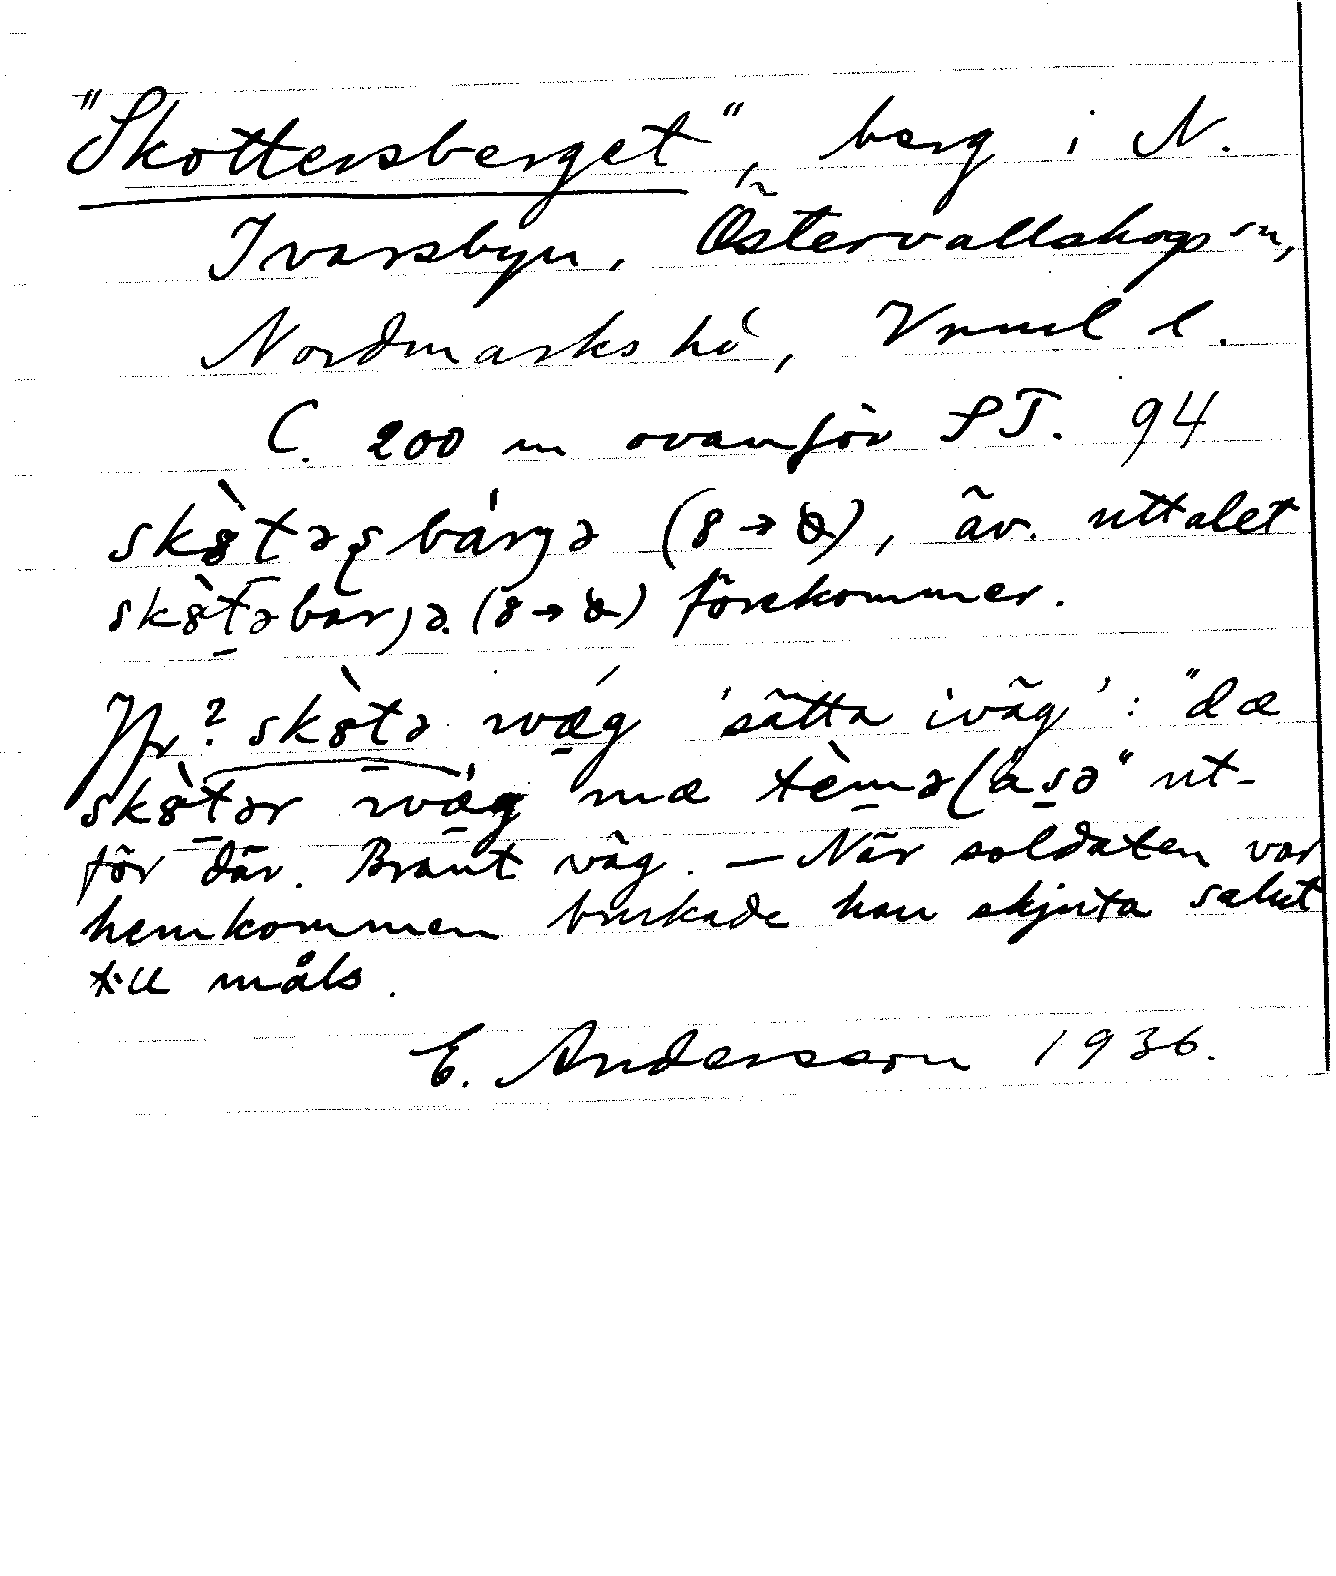 "Skottersberget", berg i N.
Ivarsbyn, Östervallskogs sn,
Nordmarks hd, Vrml l.
C. 200 m ovanför ST. 94
skȣ̀təʂbárɡə (8→ȣ), äv. uttalet
skȣ̀təbarjə (8→ȣ) förekommer.
Jfr? skȣ̀tə ıvǽg 'sätta iväg': "dæ
skȣ̀tər ıvǽg mæ tèməlàsə" ut-
för där. Brant väg. — När soldaten var
hemkommen brukade han skjuta salut
till måls.
E. Andersson 1936.